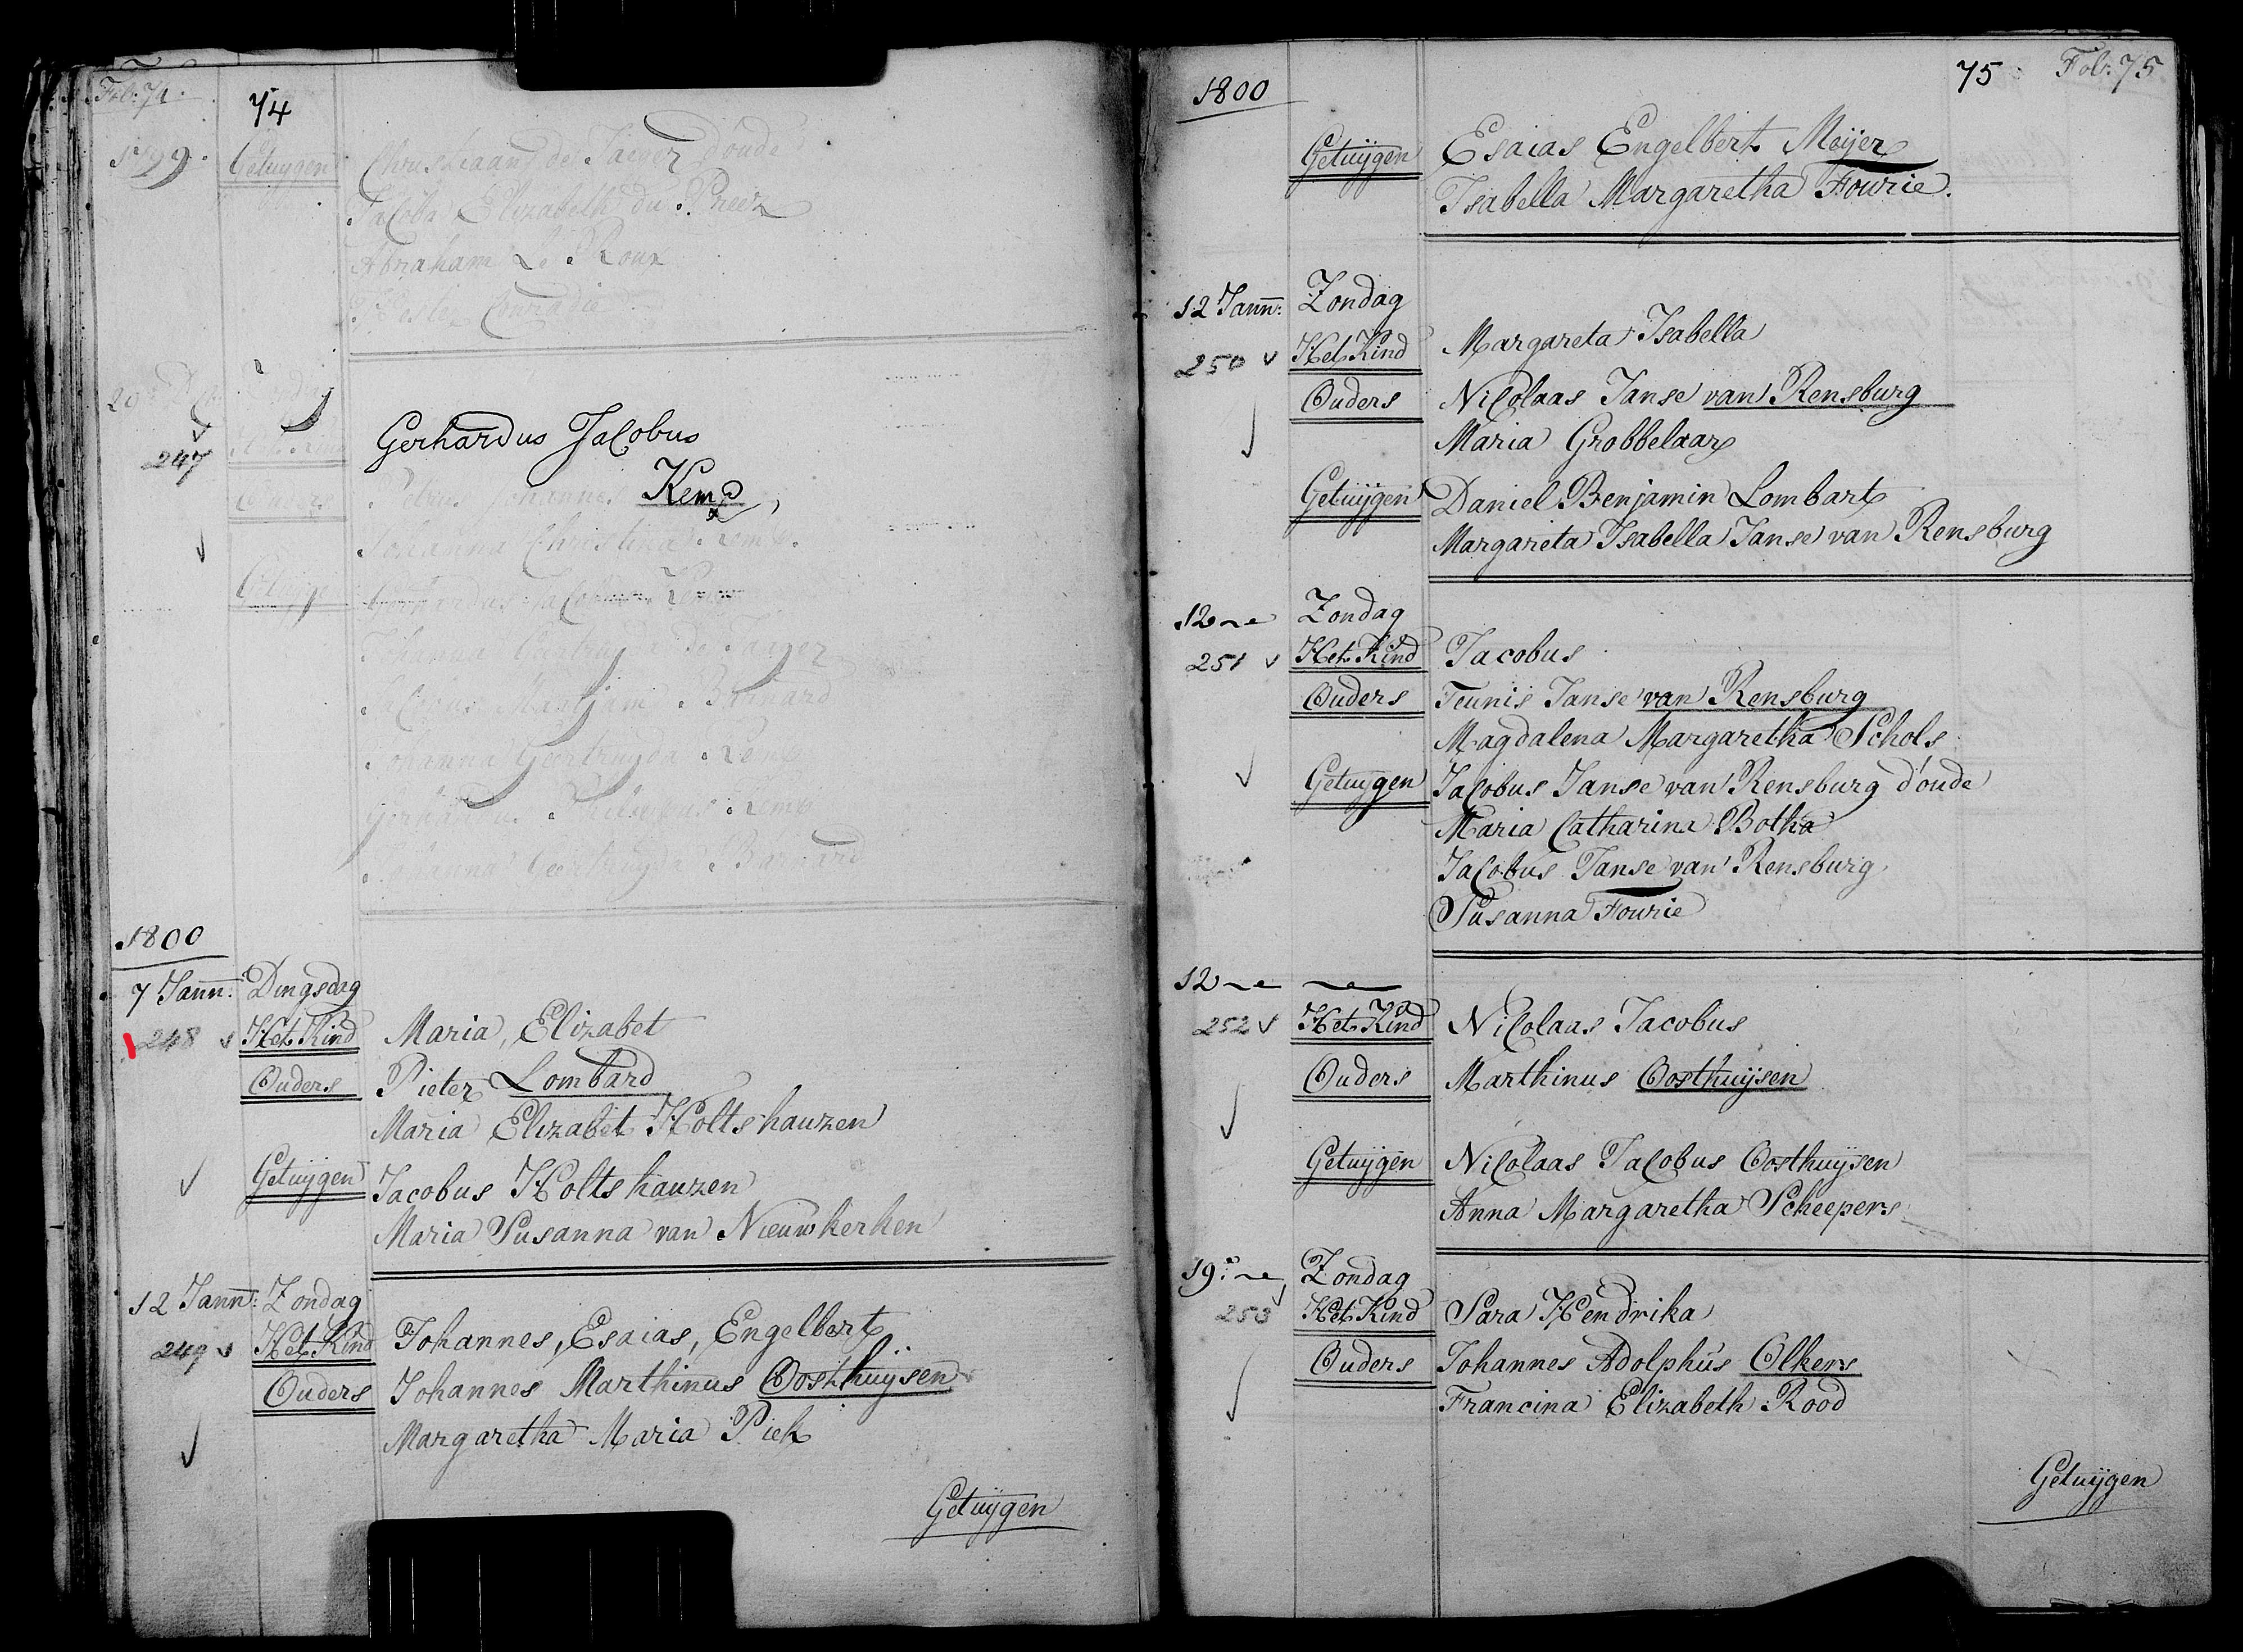 Fol: 74.
74
1799.
Getuygen
Christiaan de Jager d'oude
Jacoba Elizabeth du Preez
Abraham Le Roux
Hester Conradie
29
247
Gerhardus Jacobus
Ouders
Petrus Johannes Kemp
Johanna Christina Kemp.
Getuyge
Gerhardus Jacobus Kemp
Johanna Geertruyda de Jaager
Jacobus Barnard
Johanna Geertruyda Kemp
Gerhardus Kemp
Johanna Geertruyda Barnard
1800
7 Jann: Dingsdag
248 Het Kind Maria, Elizabet
Ouders Pieter Lombard
Maria Elizabet Holtshauzen
Getuijgen Jacobus Holtshauzen
Maria Susanna van Nieuwkerken
12 Jann: Zondag
249 Het Kind Johannes, Esaias, Engelbert
Ouders Johannes Marthinus Oosthuijsen
Margaretha Maria Piek
Getuijgen
1800
75 Fol: 75
Getuijgen Esaias Engelbert Meijer
Isabella Margaretha Fourie.
12 Jann: Zondag
250 Het Kind Margareta Isabella
Ouders Nicolaas Janse van Rensburg
Maria Grobbelaar
Getuijgen Daniel Benjamin Lombart
Margareta Isabella Janse van Rensburg
12 Zondag
251 Het Kind Jacobus
Ouders Teunis Janse van Rensburg
Magdalena Margaretha Schols
Getuygen Jacobus Janse van Rensburg d'oude
Maria Catharina Botha
Jacobus Janse van Rensburg
Susanna Fourie
12
252 Het Kind Nicolaas Jacobus
Ouders Marthinus Oosthuijsen
Getuijgen Nicolaas Jacobus Oosthuijsen
Anna Margaretha Scheepers
19 Zondag
253 Het Kind Sara Hendrika
Ouders Johannes Adolphus Olkers
Francina Elizabeth Rood
Getuijgen